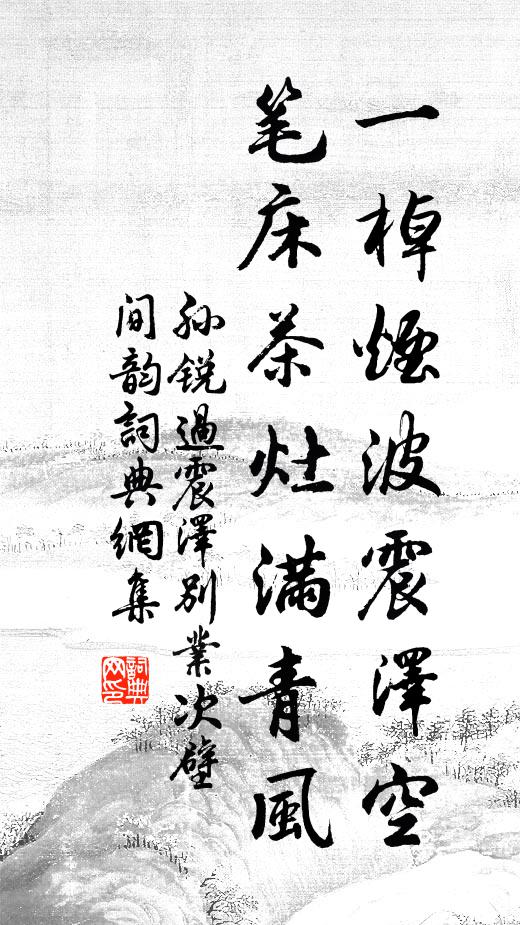 一棹煙波震澤空
笔床茶灶满青風
孙锐過震澤别業次壁
间韵詞典網集
詞典
网印